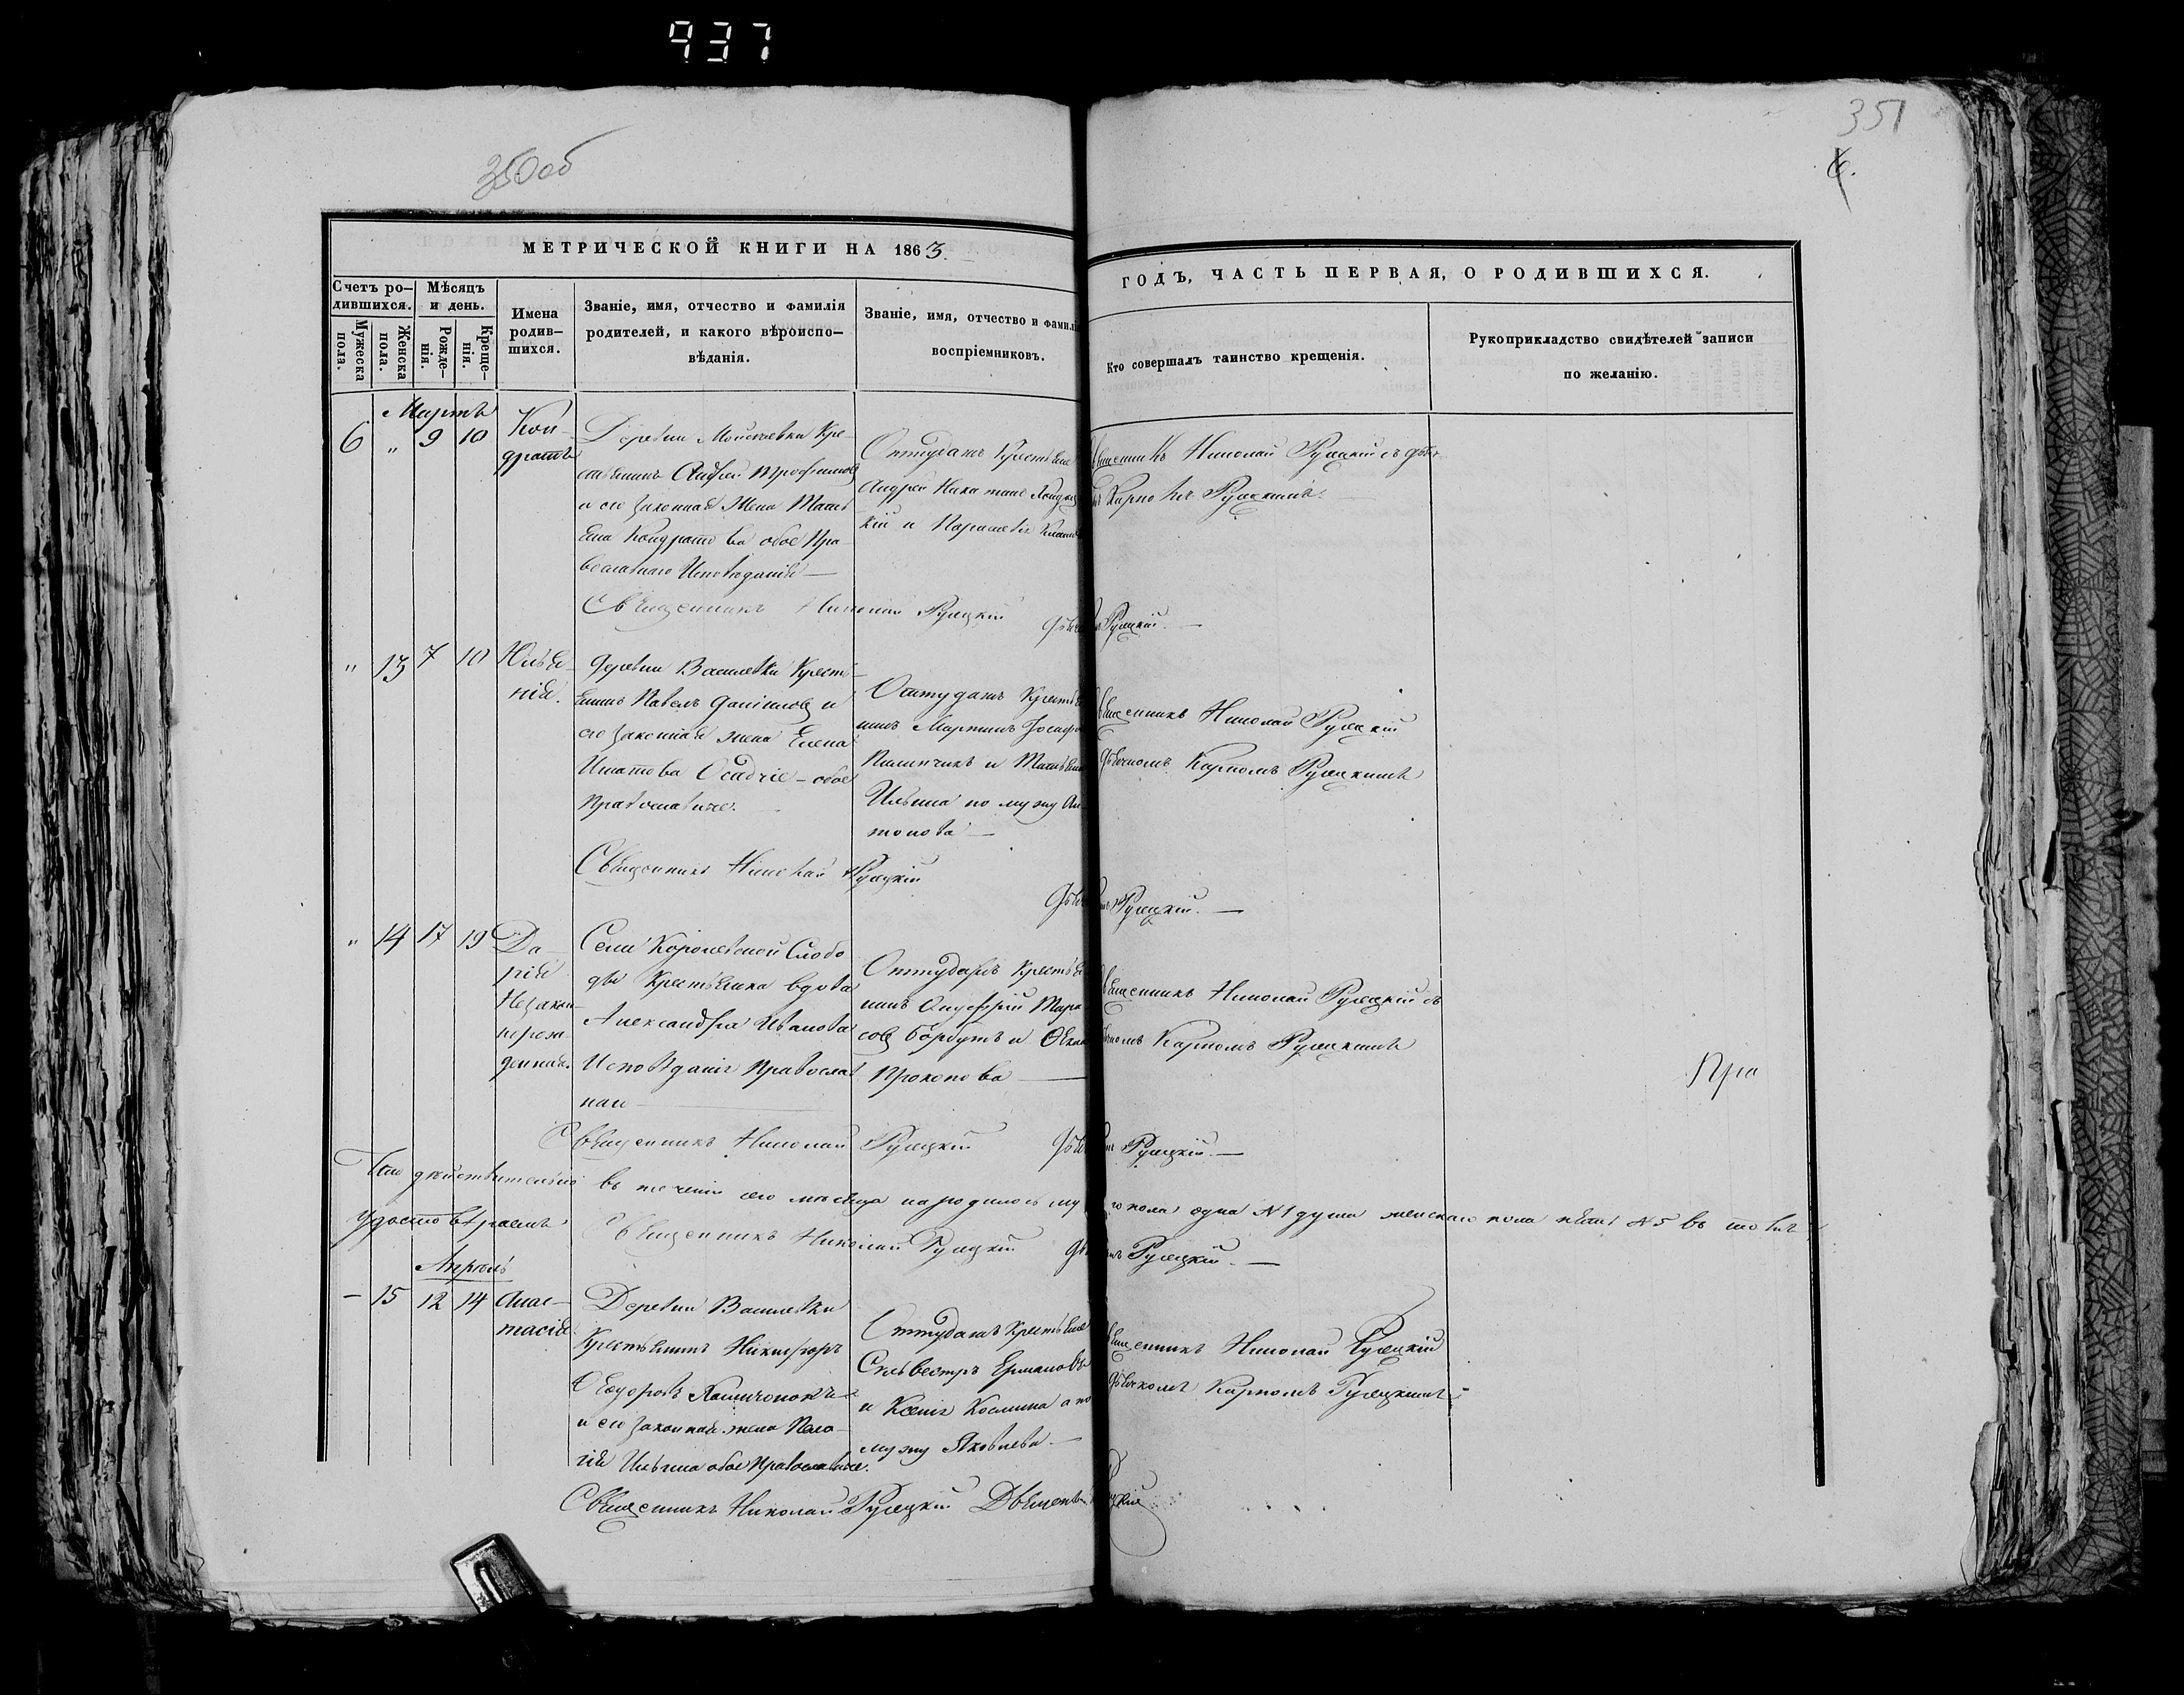 937
350об
351
6.
МЕТРИЧЕСКОЙ КНИГИ НА 1863.
ГОДЪ, ЧАСТЬ ПЕРВАЯ, О РОДИВШИХСЯ.
Счетъ ро-
дившихся.
Мужеска
пола.
Женска
пола.
Мѣсяцъ
и день.
Рожде-
нія.
Креще-
нія.
Имена
родив-
шихся.
Званіе, имя, отчество и фамилія
родителей, и какого вѣроиспо-
вѣданія.
Званіе, имя, отчество и фамил
воспріемниковъ.
Кто совершалъ таинство крещенія.
Рукоприкладство свидѣтелей записи
по желанію.
Мартъ
6 " 9 10
Кон-
дратъ
Деревни Кре-
стьянинъ Трофимовъ
и его законная Жена
Кондратова обое Пра-
вославнаго Исповѣданія
Оттудажъ Крестьяне
Андрей
кій и Параскевія
Священникъ Николай Рулецкій съ
Рулецкимъ.
Священникъ Николай Рулецкій
Рулецкій.
" 13 7 10
Юлія-
нія.
Деревни Василевки Кресть-
янинъ Павелъ Даніиловъ и
его законная жена Елена
Игнатова Осадчіе - обое
православные.
Оттудажъ Крестья
нинъ Мартинъ
и
Ильина по мужу Ан-
тонова
Священникъ Николай Рулецкій
Дьячкомъ Карпомъ Рулецкимъ
Священникъ Николай Рулецкій
Рулецкій.
" 14 17 19
Да-
рія
Незакон-
норож-
денная.
Села Королевской Слобо
ды Крестьянка вдова
Александра Иванова
Исповѣданія Православ
ная
Оттудажъ Крестья
нинъ Онуфрій Тара
совъ Борбутъ и
Прокопова
Священникъ Николай Рулецкій съ
Дьячкомъ Карпомъ Рулецкимъ
Пра
Священникъ Николай Рулецкій
Рулецкій.
Что дѣйствительно въ теченіи сего мѣсяца народилось му го пола одна N1 душа женскаго пола пять N5 въ томъ
удостовѣряемъ Священникъ Николай Рулецкій
Рулецкій.
Апрѣль
- 15 12 14
Анас-
тасія.
Деревни Василевки
Крестьянинъ Никифоръ
Ѳеодоровъ
и его законная жена Пела-
гія Ильина обое Православные.
Оттудажъ Крестьяне
Сильвестръ Ермановъ
и Ксенія Космина а по
мужу Яковлева
Священникъ Николай Рулецкій
Дьячкомъ Карпомъ Рулецкимъ
Священникъ Николай Рулецкій